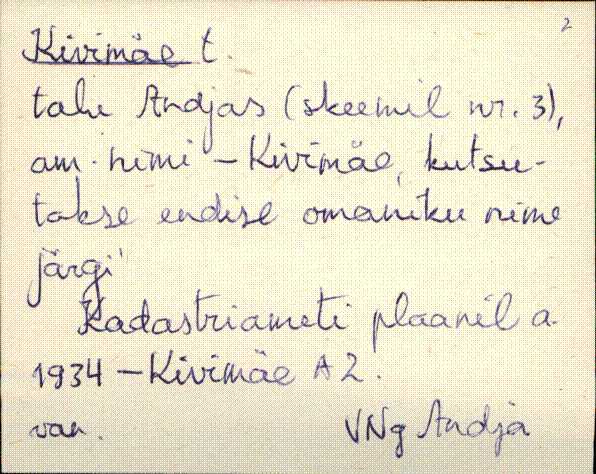 2
Kivimäe t.
talu Andjas (skeemil nr. 3),
am. nimi – Kivimäe, kutsu-
takse endise omaniku nime
järgi
Kadastriameti plaanil a.
1934 – Kivimäe A2.
van. VNg Andja